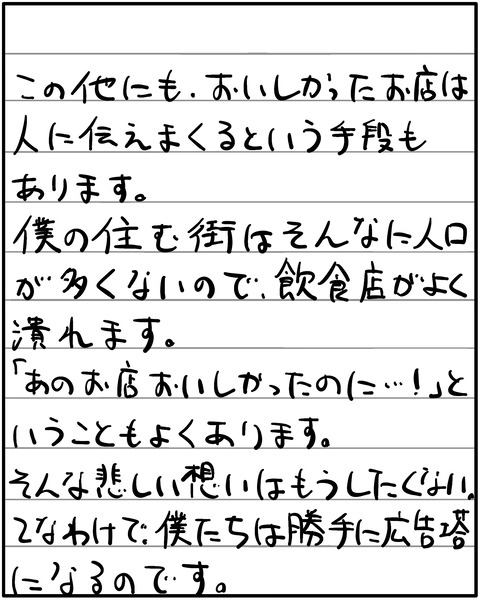 この他にも、おいしかったお店は
人に伝えまくるという手段も
あります。
僕の住む街はそんなに人口
が多くないので、飲食店がよく
潰れます。
「あのお店おいしかったのに…!」と
いうこともよくあります。
そんな悲しい想いはもうしたくない。
てなわけで、僕たちは勝手に広告塔
になるのです。